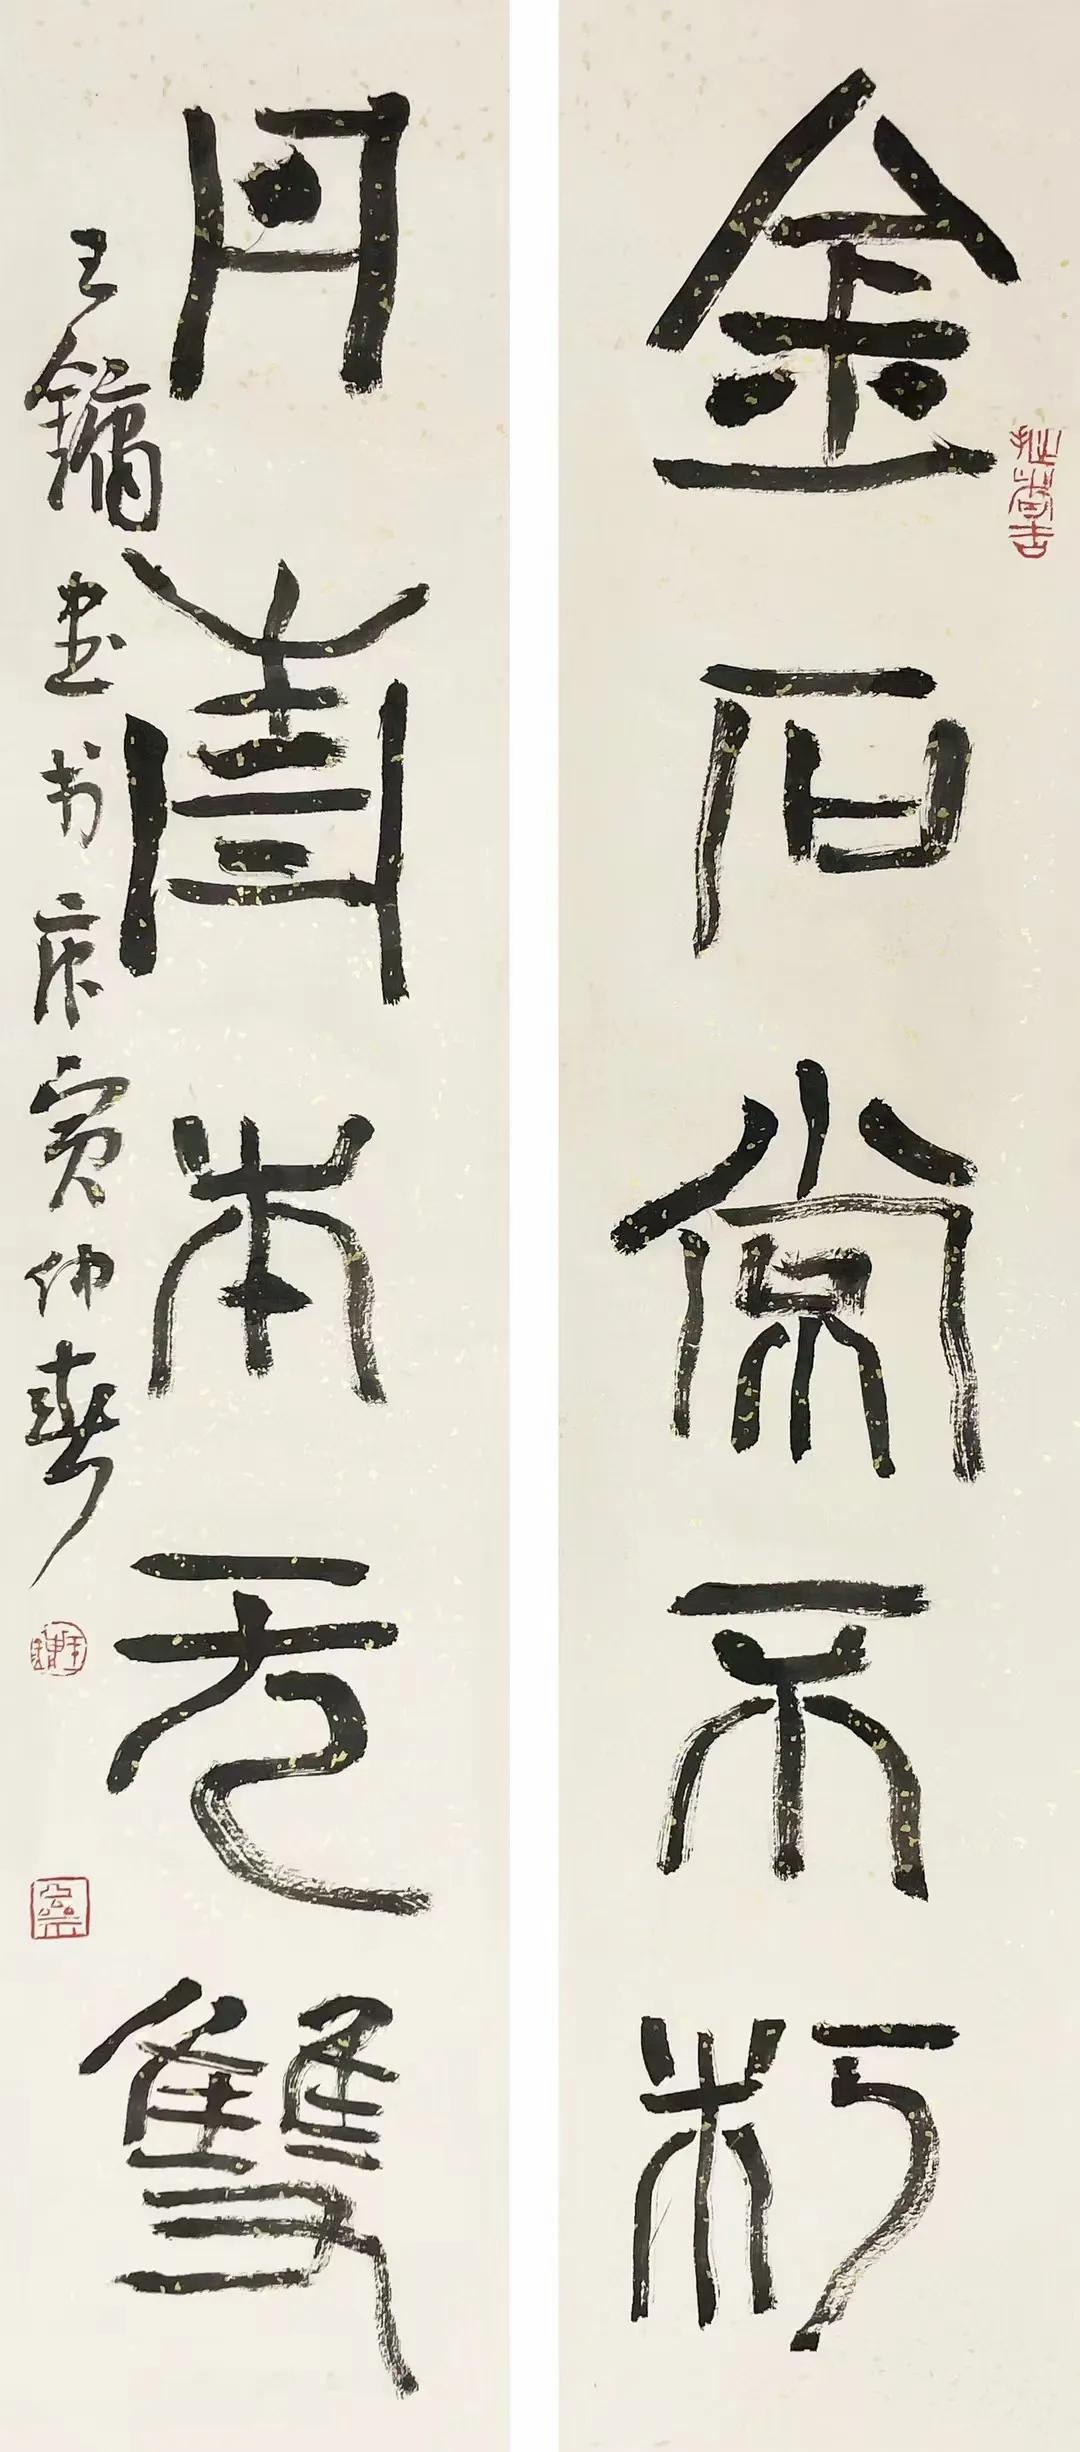 金石常不朽
丹青本无雙
王鏞书庚寅仲春